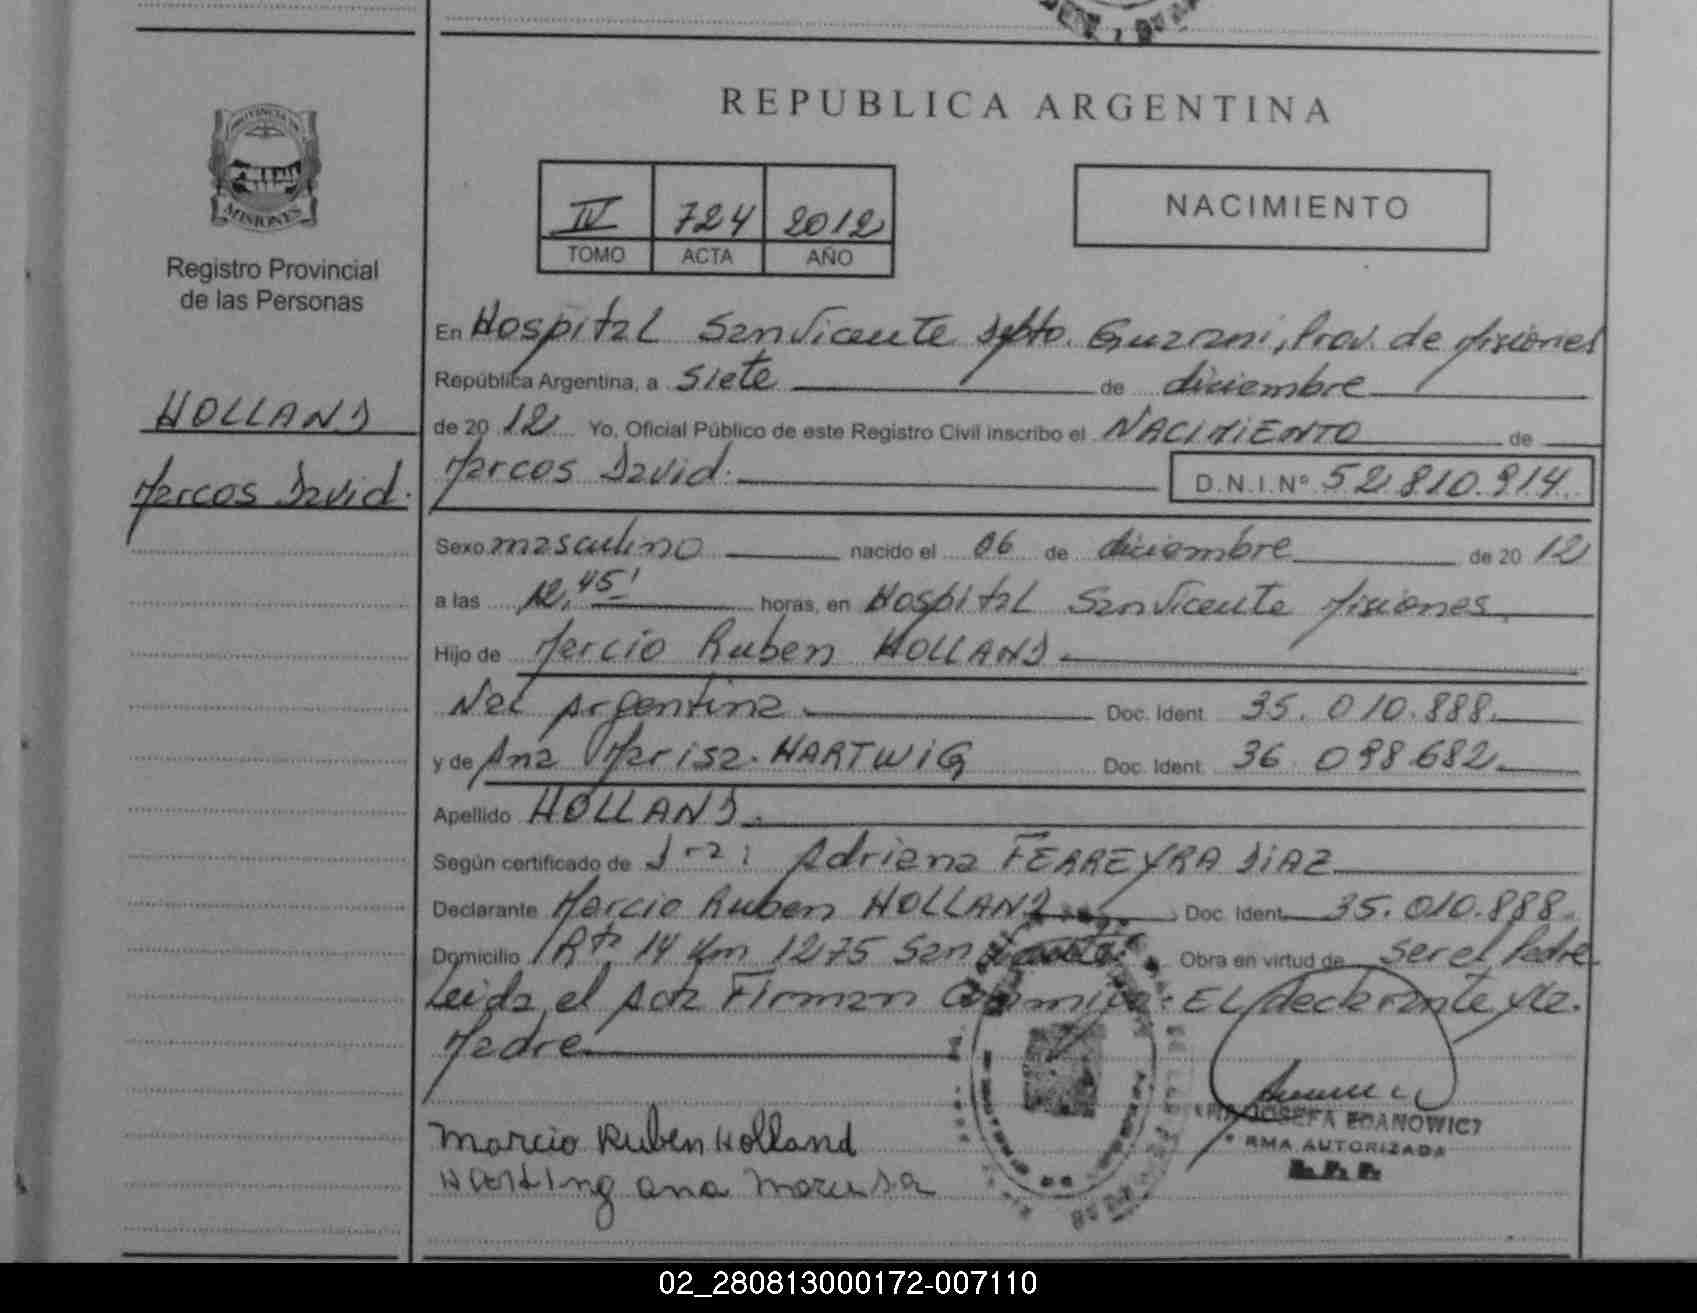 REPUBLICA ARGENTINA
PROVINCIA DE
MISIONES
Registro Provincial
de las Personas
HOLLAND
Marcos David.
IV 724 2012
TOMO ACTA AÑO
NACIMIENTO
En Hospital San Vicente Dpto. Guarani, Prov. de Misiones
República Argentina, a siete de diciembre
de 20 12 Yo, Oficial Público de este Registro Civil inscribo el NACIMIENTO de
Marcos David. D.N.I.Nº 52.810.914
Sexo masculino nacido el 06 de diciembre de 20 12
a las 12,45' horas, en Hospital San Vicente Misiones
Hijo de Marcio Ruben HOLLAND
Nac Argentina Doc. Ident. 35.010.888
y de Ana Marisa HARTWIG Doc. Ident. 36.098.682
Apellido HOLLAND.
Según certificado de Dra: Adriana FERREYRA DIAZ
Declarante Marcio Ruben HOLLAND Doc. Ident. 35.010.888
Domicilio Rta 14 Km 1275 San Vicente Obra en virtud de ser el Padre
Leida el Acta Firman Conmigo: EL declarante y la
Madre
Marcio Ruben Holland
ana
JOSEFA
AUTORIZADA
02_280813000172-007110